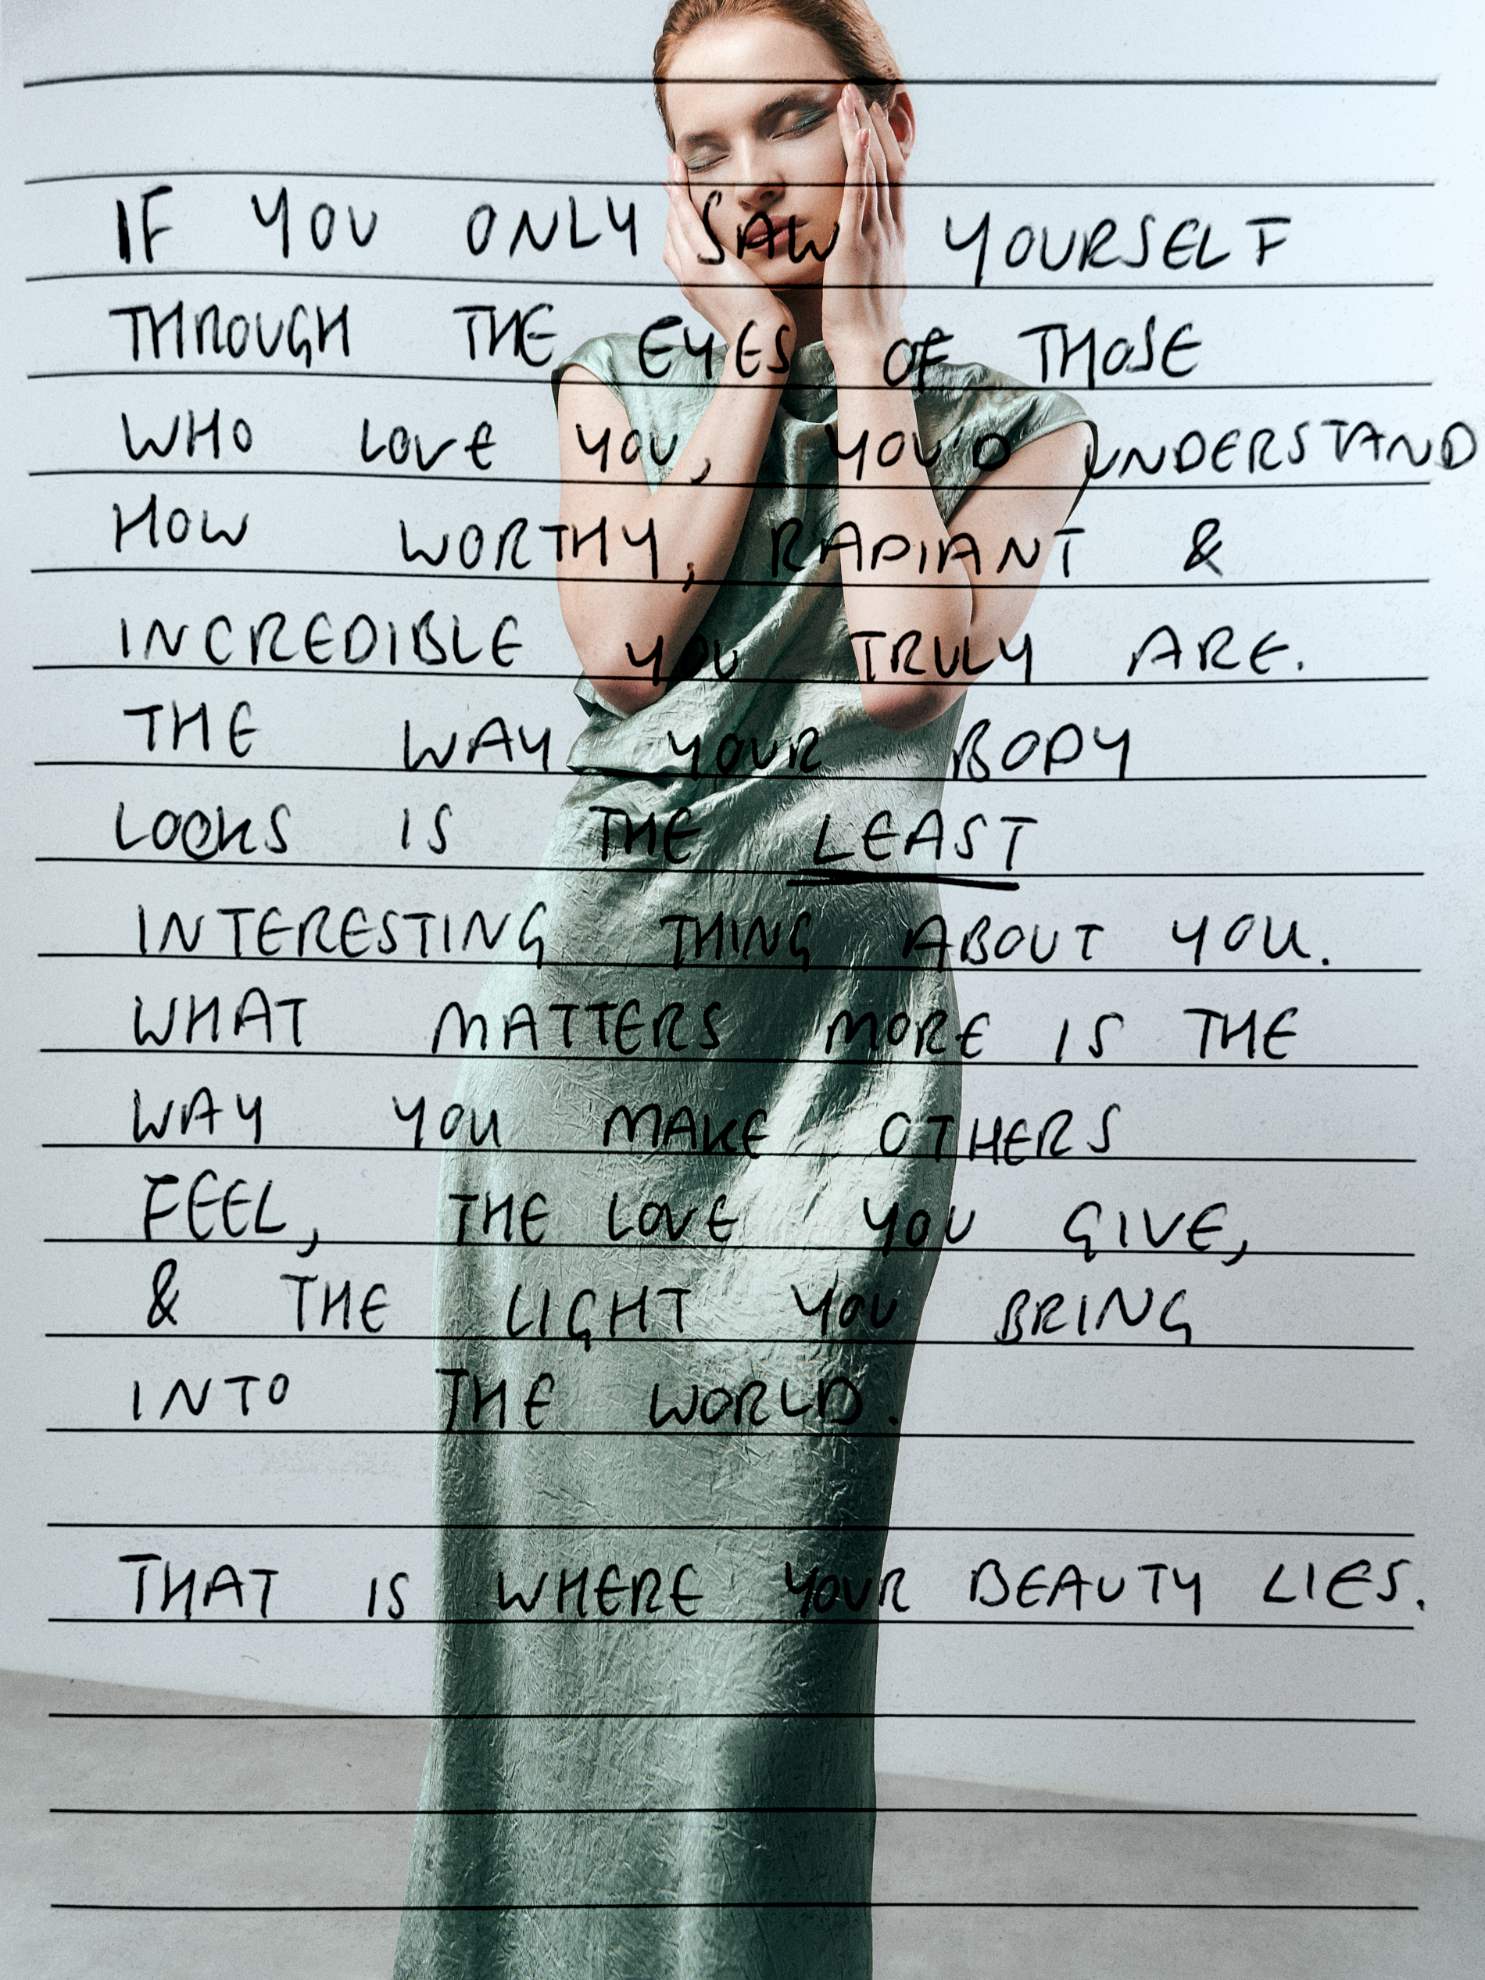 IF YOU ONLY SAW YOURSELF
THROUGH THE EYES OF THOSE
WHO LOVE YOU, YOU'D UNDERSTAND
HOW WORTHY, RADIANT &
INCREDIBLE YOU TRULY ARE.
THE WAY YOUR BODY
LOOKS IS THE LEAST
INTERESTING THING ABOUT YOU.
WHAT MATTERS MORE IS THE
WAY YOU MAKE OTHERS
FEEL, THE LOVE YOU GIVE,
& THE LIGHT YOU BRING
INTO THE WORLD.
THAT IS WHERE YOUR BEAUTY LIES.